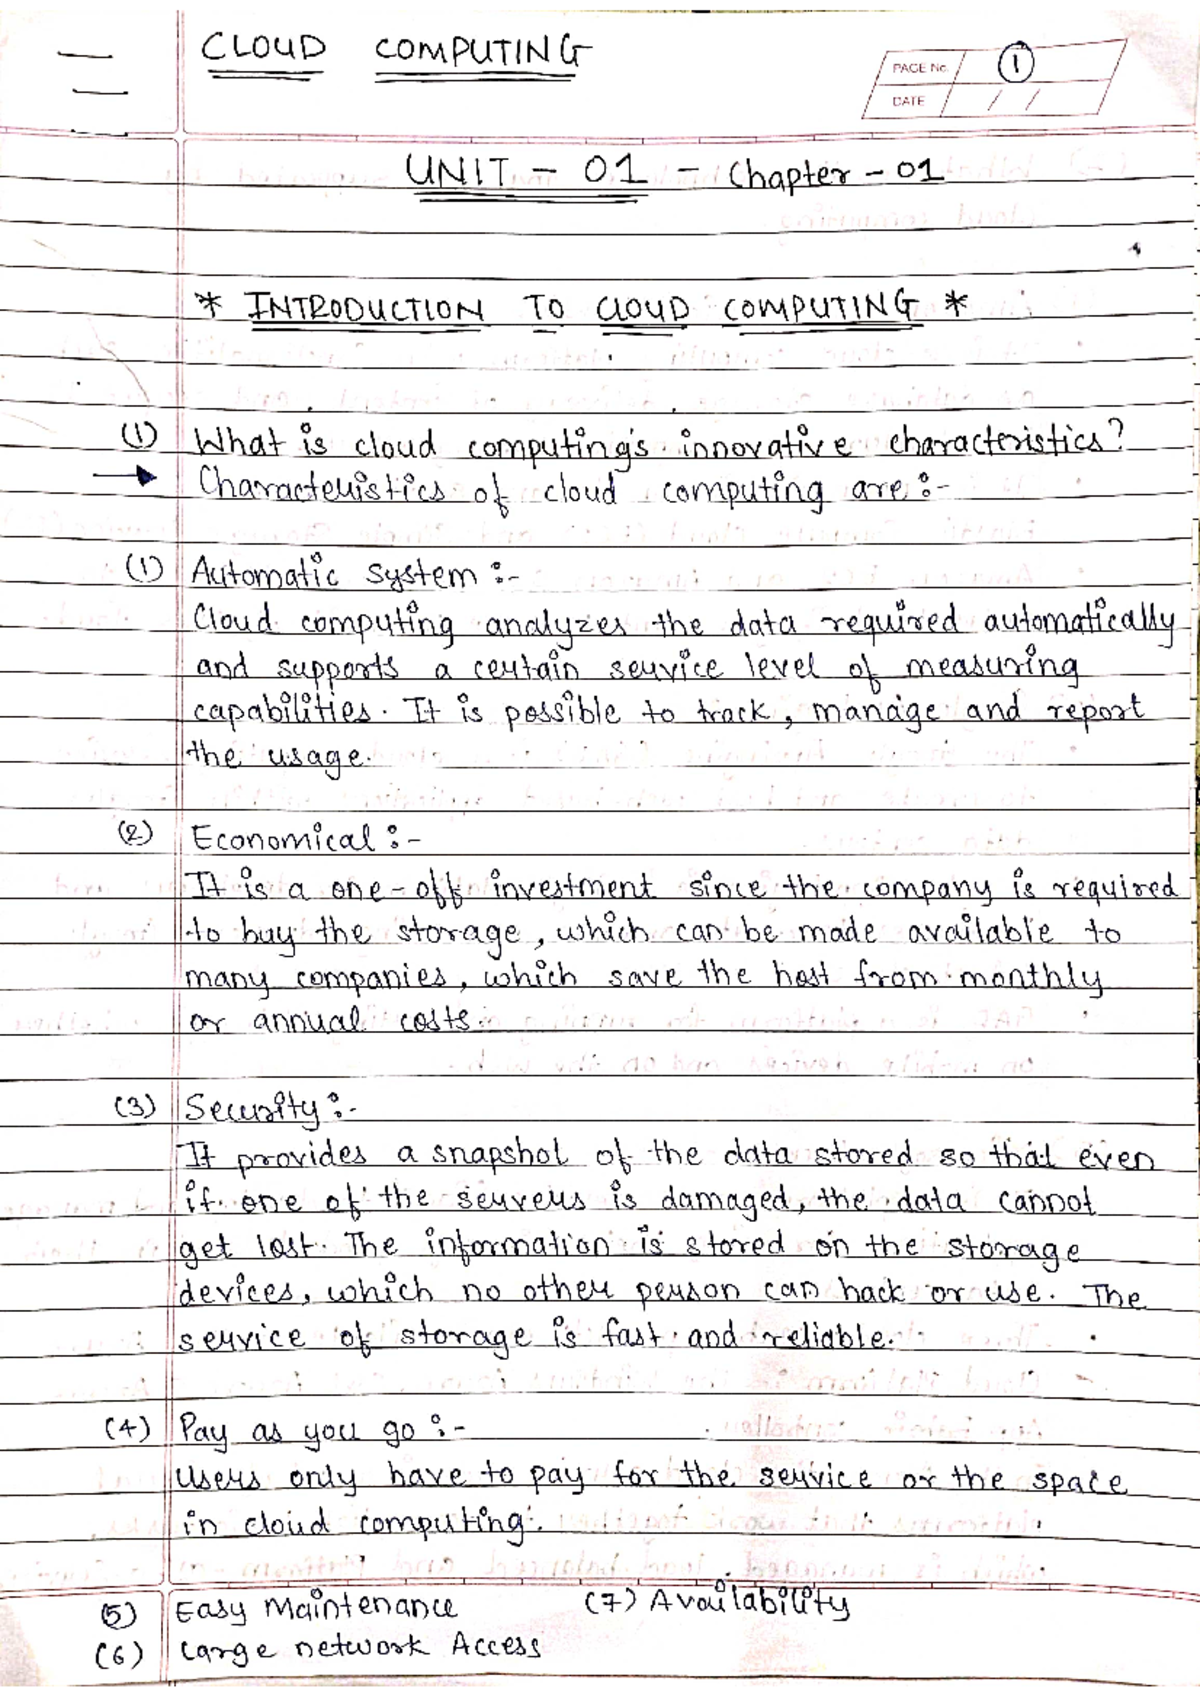 CLOUD COMPUTING
PAGE No. 1
DATE / /
UNIT - 01 - Chapter - 01
* INTRODUCTION TO CLOUD COMPUTING *
(1) What is cloud computing's innovative characteristics?
→ Characteristics of cloud computing are :-
(1) Automatic system :-
Cloud computing analyzes the data required automatically
and supports a certain service level of measuring
capabilities. It is possible to track, manage and report
the usage.
(2) Economical :-
It is a one-off investment since the company is required
to buy the storage, which can be made available to
many companies, which save the host from monthly
or annual costs.
(3) Security :-
It provides a snapshot of the data stored so that even
if one of the servers is damaged, the data cannot
get lost. The information is stored on the storage
devices, which no other person can hack or use. The
service of storage is fast and reliable.
(4) Pay as you go :-
Users only have to pay for the service or the space
in cloud computing.
(5) Easy Maintenance (7) Availability
(6) Large network Access